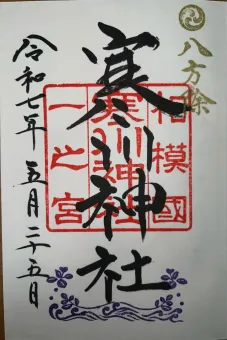 八方除
相模國
寒川神社
一之宮
寒川神社
令和七年 五月二十五日